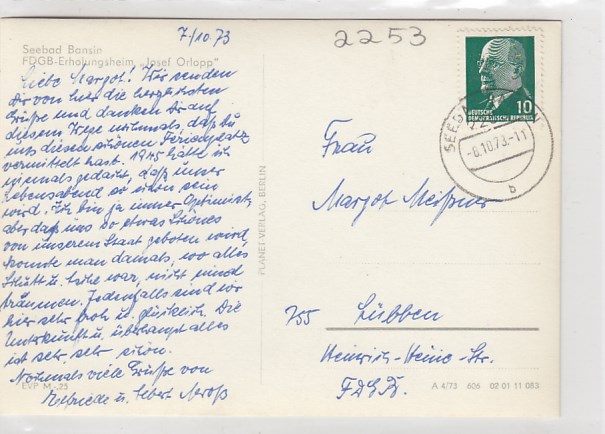 7/10.73
2253
Seebad Bansin
FDGB-Erholungsheim „Josef Orlopp"
Liebe Margot! Wir senden
Dir von hier die herzlichsten
Grüße und danken Dir auf
diesem Wege nochmals, daß Du
uns diesen schönen Ferienplatz
vermittelt hast. 1945 hätte ich
niemals gedacht, daß unser
Lebensabend so schön sein
wird. Ich bin ja immer Optimist,
aber daß uns so etwas Schönes
von unserem Staat geboten wird,
konnte man damals, wo alles
Schutt u. Asche war, nicht
träumen. Jedenfalls sind wir
hier sehr froh u. glücklich. Die
Unterkunft u. überhaupt alles
ist sehr, sehr schön.
Nochmals viele Grüße von
Elfriede u.
EVP M -,25
PLANET VERLAG, BERLIN
10
DEUTSCHE
DEMOKRATISCHE REPUBLIK
-8.10.73.-11
b
Frau
Margot Meißner
755 Lübben
Heinrich-Heine-Str.
FDGB.
A 4/73 606 02 01 11 083